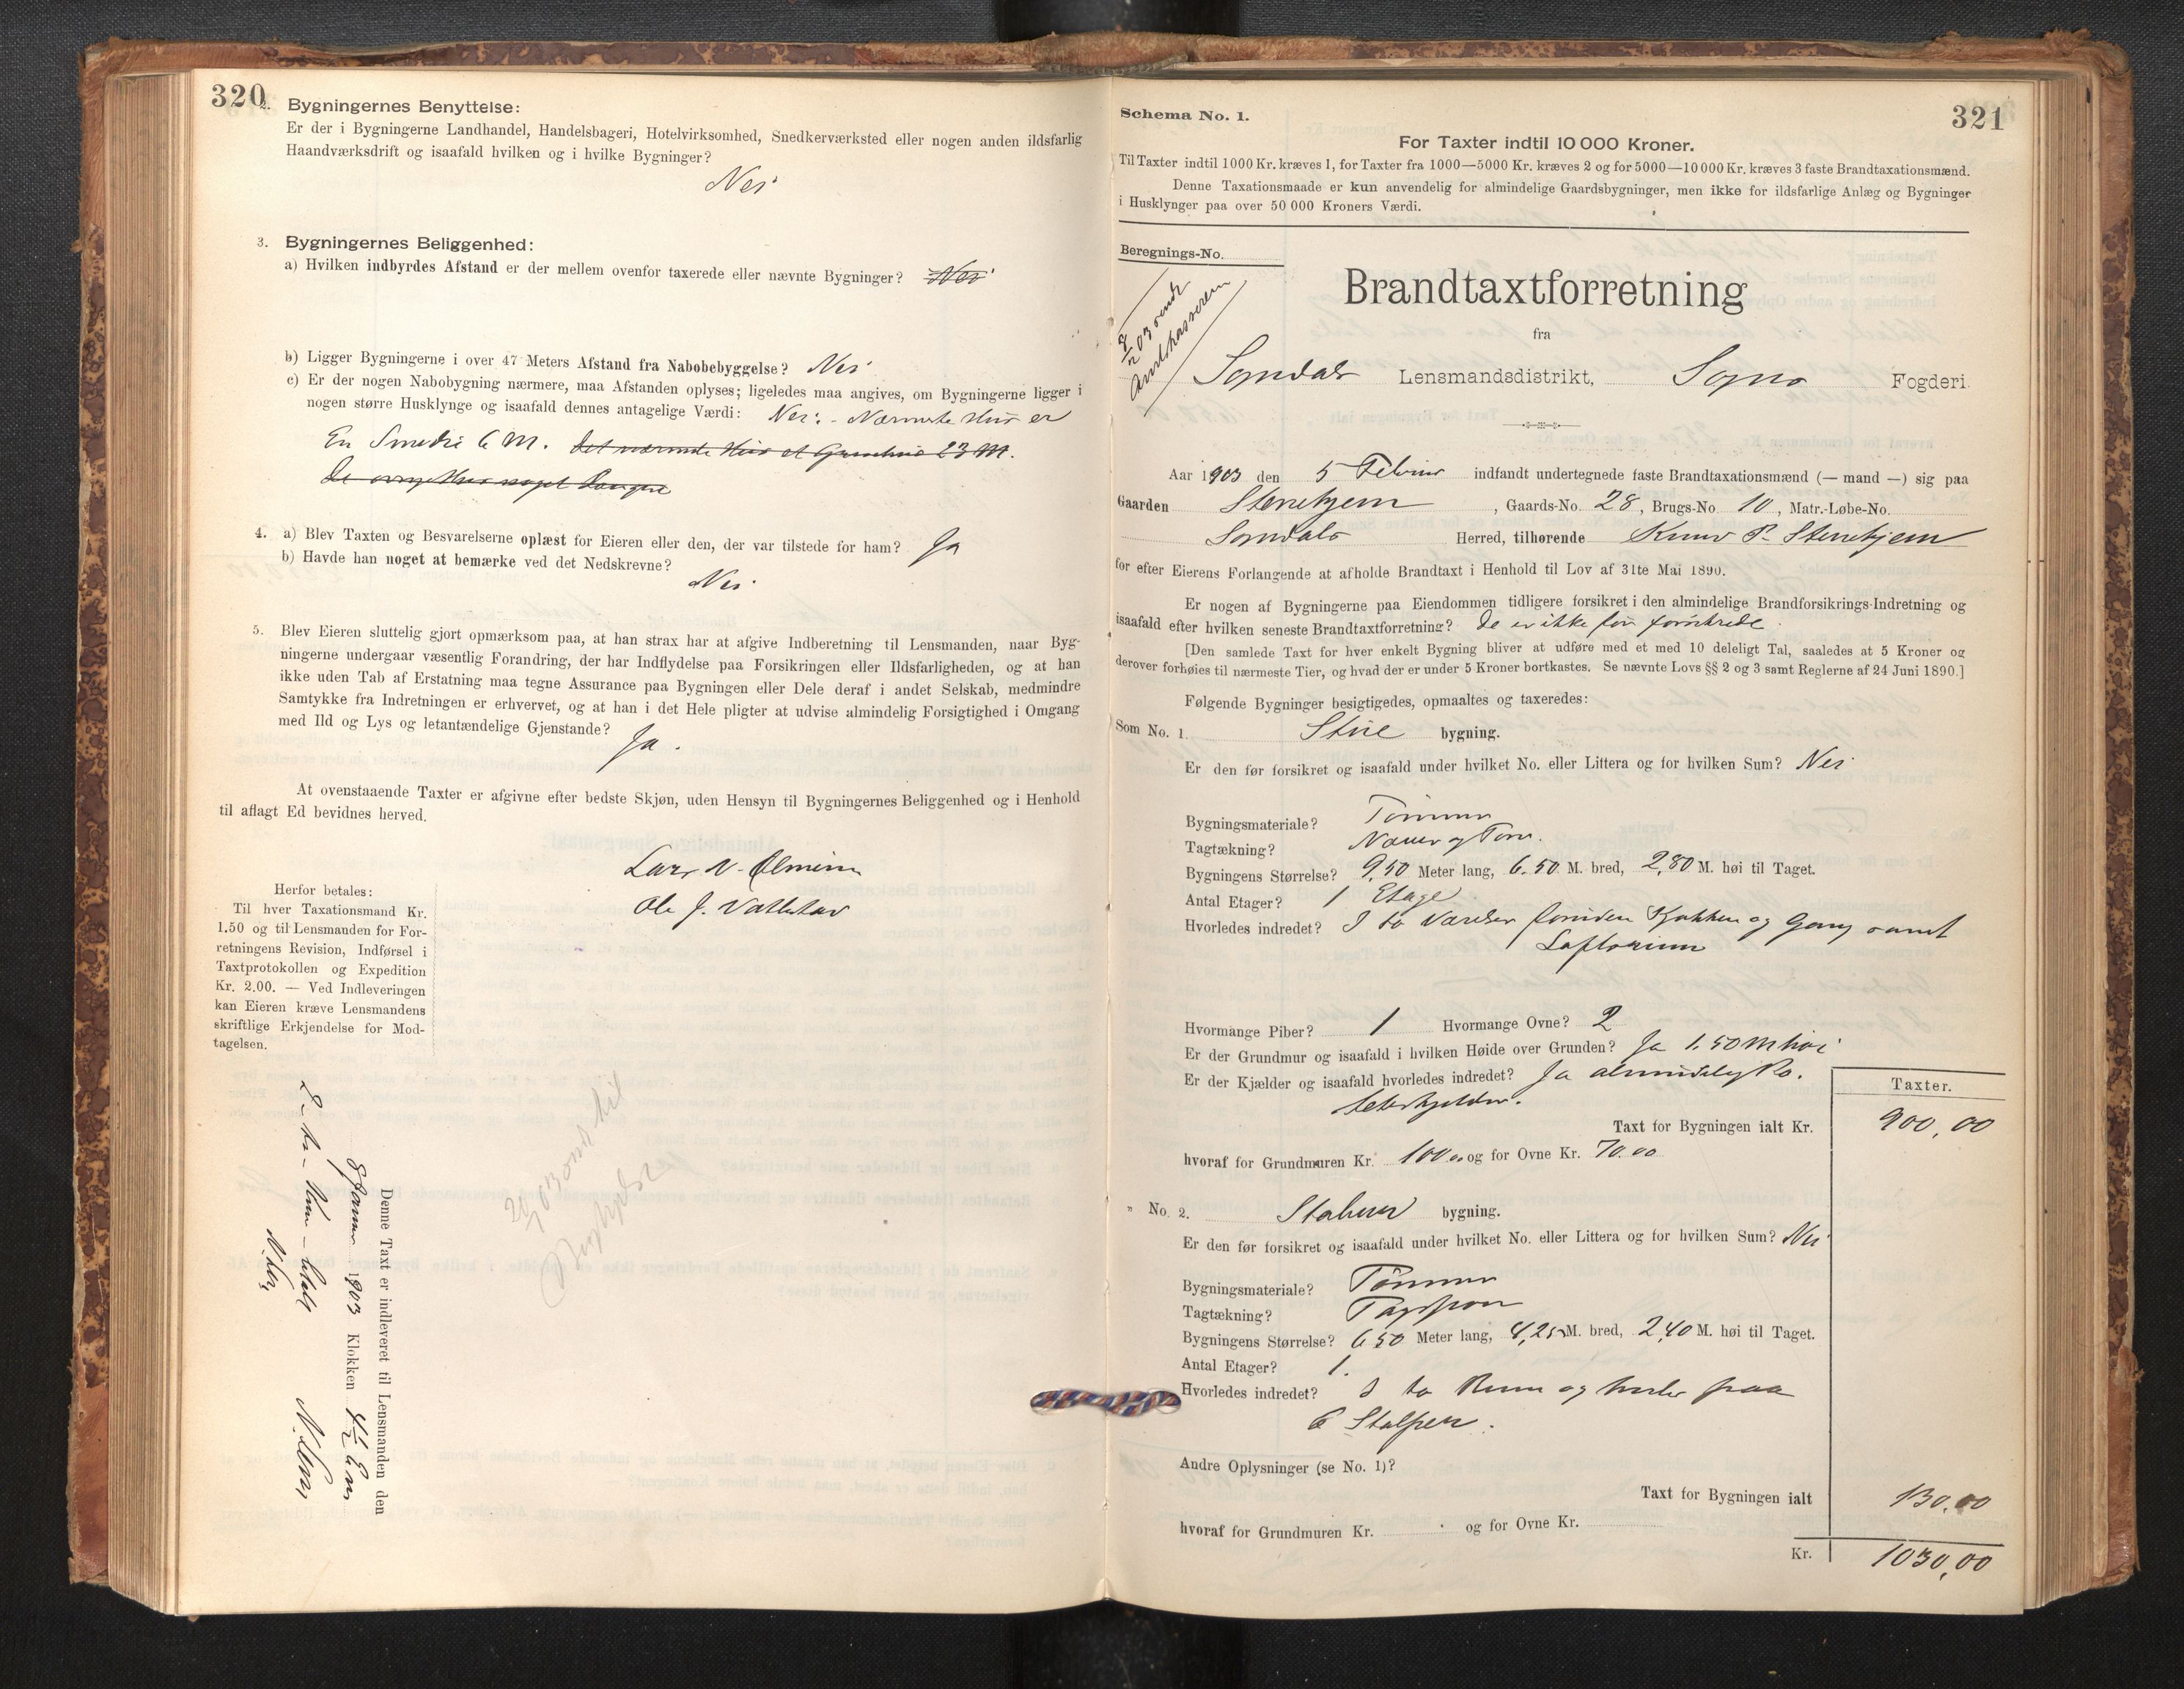 320
2. Bygningernes Benyttelse:
Er der i Bygningerne Landhandel, Handelsbageri, Hotelvirksomhed, Snedkerværksted eller nogen anden ildsfarlig
Haandværksdrift og isaafald hvilken og i hvilke Bygninger?
Nei
3. Bygningernes Beliggenhed:
a) Hvilken indbyrdes Afstand er der mellem ovenfor taxerede eller nævnte Bygninger? Nei
b) Ligger Bygningerne i over 47 Meters Afstand fra Nabobebyggelse? Nei
c) Er der nogen Nabobygning nærmere, maa Afstanden oplyses; ligeledes maa angives, om Bygningerne ligger i
nogen større Husklynge og isaafald dennes antagelige Værdi: Nei. - Nærmeste Hus er
En Smedie 6 M. det nærmeste Hus et 23 M.
De øvrige Hus noget Længere
4. a) Blev Taxten og Besvarelserne oplæst for Eieren eller den, der var tilstede for ham? Ja
b) Havde han noget at bemærke ved det Nedskrevne?
Nei
5. Blev Eieren sluttelig gjort opmærksom paa, at han strax har at afgive Indberetning til Lensmanden, naar Byg-
ningerne undergaar væsentlig Forandring, der har Indflydelse paa Forsikringen eller Ildsfarligheden, og at han
ikke uden Tab af Erstatning maa tegne Assurance paa Bygningen eller Dele deraf i andet Selskab, medmindre
Samtykke fra Indretningen er erhvervet, og at han i det Hele pligter at udvise almindelig Forsigtighed i Omgang
med Ild og Lys og letantændelige Gjenstande?
Ja.
At ovenstaaende Taxter er afgivne efter bedste Skjøn, uden Hensyn til Bygningernes Beliggenhed og i Henhold
til aflagt Ed bevidnes herved.
Lars N.
Ole J.
Herfor betales:
Til hver Taxationsmand Kr.
1.50 og til Lensmanden for For-
retningens Revision, Indførsel i
Taxtprotokollen og Expedition
Kr. 2.00. — Ved Indleveringen
kan Eieren kræve Lensmandens
skriftlige Erkjendelse for Mod-
tagelsen.
Denne Taxt er indleveret til Lensmanden den
1903 Klokken 4½ Em
321
Schema No. 1.
For Taxter indtil 10 000 Kroner.
Til Taxter indtil 1000 Kr. kræves 1, for Taxter fra 1000—5000 Kr. kræves 2 og for 5000—10 000 Kr. kræves 3 faste Brandtaxationsmænd.
Denne Taxationsmaade er kun anvendelig for almindelige Gaardsbygninger, men ikke for ildsfarlige Anlæg og Bygninger
i Husklynger paa over 50 000 Kroners Værdi.
Beregnings-No.
03 sendt
Amtskassereren
Brandtaxtforretning
fra
Sogndals Lensmandsdistrikt, Sogns Fogderi.
Aar 1903 den 5 Februar indfandt undertegnede faste Brandtaxationsmænd (— mand —) sig paa
Gaarden Stenehjem, Gaards-No. 28, Brugs-No. 10, Matr.-Løbe-No.
Sogndals Herred, tilhørende Knut P. Stenehjem
for efter Eierens Forlangende at afholde Brandtaxt i Henhold til Lov af 31te Mai 1890.
Er nogen af Bygningerne paa Eiendommen tidligere forsikret i den almindelige Brandforsikrings-Indretning og
isaafald efter hvilken seneste Brandtaxtforretning? De er ikke før forsikrede
[Den samlede Taxt for hver enkelt Bygning bliver at udføre med et med 10 deleligt Tal, saaledes at 5 Kroner og
derover forhøies til nærmeste Tier, og hvad der er under 5 Kroner bortkastes. Se nævnte Lovs §§ 2 og 3 samt Reglerne af 24 Juni 1890.]
Følgende Bygninger besigtigedes, opmaaltes og taxeredes:
Som No. 1. Stue bygning.
Er den før forsikret og isaafald under hvilket No. eller Littera og for hvilken Sum? Nei
Bygningsmateriale? Tømmer
Tagtækning? Næver og Torv.
Bygningens Størrelse? 9,50 Meter lang, 6.50 M. bred, 2,80 M. høi til Taget.
Antal Etager? 1 Etage
Hvorledes indredet? I to Værelser foruden Kjøkken og Gang samt
Loftsrum
Hvormange Piber? 1 Hvormange Ovne? 2
Er der Grundmur og isaafald i hvilken Høide over Grunden? Ja 1.50 M høi
Er der Kjælder og isaafald hvorledes indredet? Ja almindelig Po.
tetkjelder.
Taxter.
Taxt for Bygningen ialt Kr. 900,00
hvoraf for Grundmuren Kr. 100.00 og for Ovne Kr. 70.00
" No. 2. Stabur bygning.
Er den før forsikret og isaafald under hvilket No. eller Littera og for hvilken Sum? Nei
Bygningsmateriale? Tømmer
Tagtækning? Tagspon
Bygningens Størrelse? 6,50 Meter lang, 4,25 M. bred, 2,40 M. høi til Taget.
Antal Etager? 1.
Hvorledes indredet? I to Rum og hviler paa
6 Stolper.
Andre Oplysninger (se No. 1)?
Taxt for Bygningen ialt 130,00
hvoraf for Grundmuren Kr. og for Ovne Kr.
Kr. 1030,00